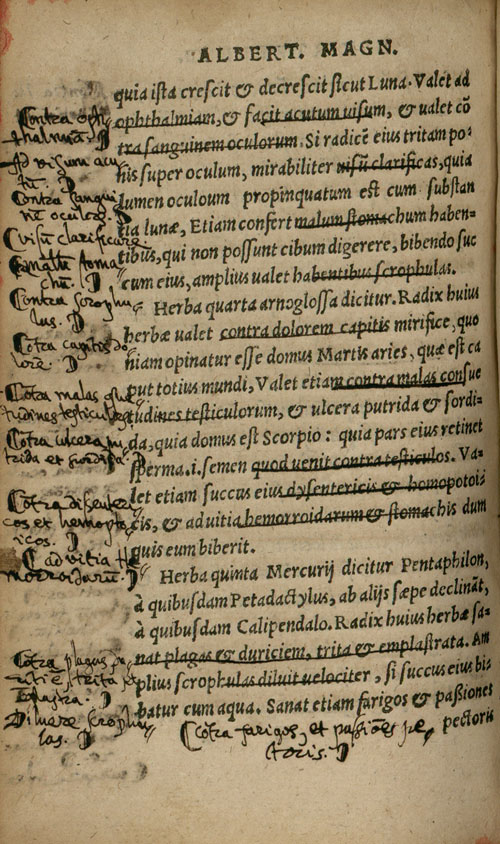 ALBERT. MAGN.
quia iſta creſcit & decreſcit ſicut Luna. Valet ad
ophthalmiam, & facit acutum uiſum, & ualet cō
tra ſanguinem oculorum. Si radicē eius tritam po-
nis ſuper oculum, mirabiliter uiſū clarificas, quia
lumen oculoum propinquatum eſt cum ſubſtan
tia lunæ, Etiam confert malum ſtomachum haben-
tibus, qui non poſſunt cibum digerere, bibendo ſuc
cum eius, amplius ualet habentibus ſcrophulas.
Herba quarta arnogloſſa dicitur. Radix huius
herbæ ualet contra dolorem capitis mirifice, quo
niam opinatur eſſe domus Martis aries, quæ eſt ca
put totius mundi, Valet etiam contra malas conſue
tudines teſticulorum, & ulcera putrida & ſordi-
da, quia domus eſt Scorpio: quia pars eius retinet
ſperma.i.ſemen quod uenit contra teſticulos. Va-
let etiam ſuccus eius dyſentericis & homopotoi-
cis, & ad uitia hemorroidarum & ſtomachis dum
quis eum biberit.
Herba quinta Mercurij dicitur Pentaphilon,
à quibuſdam Petadactylus, ab alijs ſæpe declināt,
à quibuſdam Calipendalo. Radix huius herbæ ſa-
nat plagas & duriciem, trita & emplaſtrata. Am
plius ſcrophulas diluit uelociter, ſi ſuccus eius bi-
batur cum aqua. Sanat etiam farigos & paſſiones
pectoris
Contra oph
thalmiā.
Ad visum acu
tū.
Contra sangui
nē oculorū.
visū clarificare
malū stoma
chū.
Contra scrophu
las.
Cōtra capitis do
lorē.
Cōtra malas
tudines testiculorū
Cōtra ulcera pu
trida et sordida.
Cōtra disenteri
cos et hemopto
icos.
ad vitia He
morroidarū.
Cōtra plagas
trita
plastra.
Diluere scrophu
las.
Cōtra farigos, et passiōes pe
ctoris.